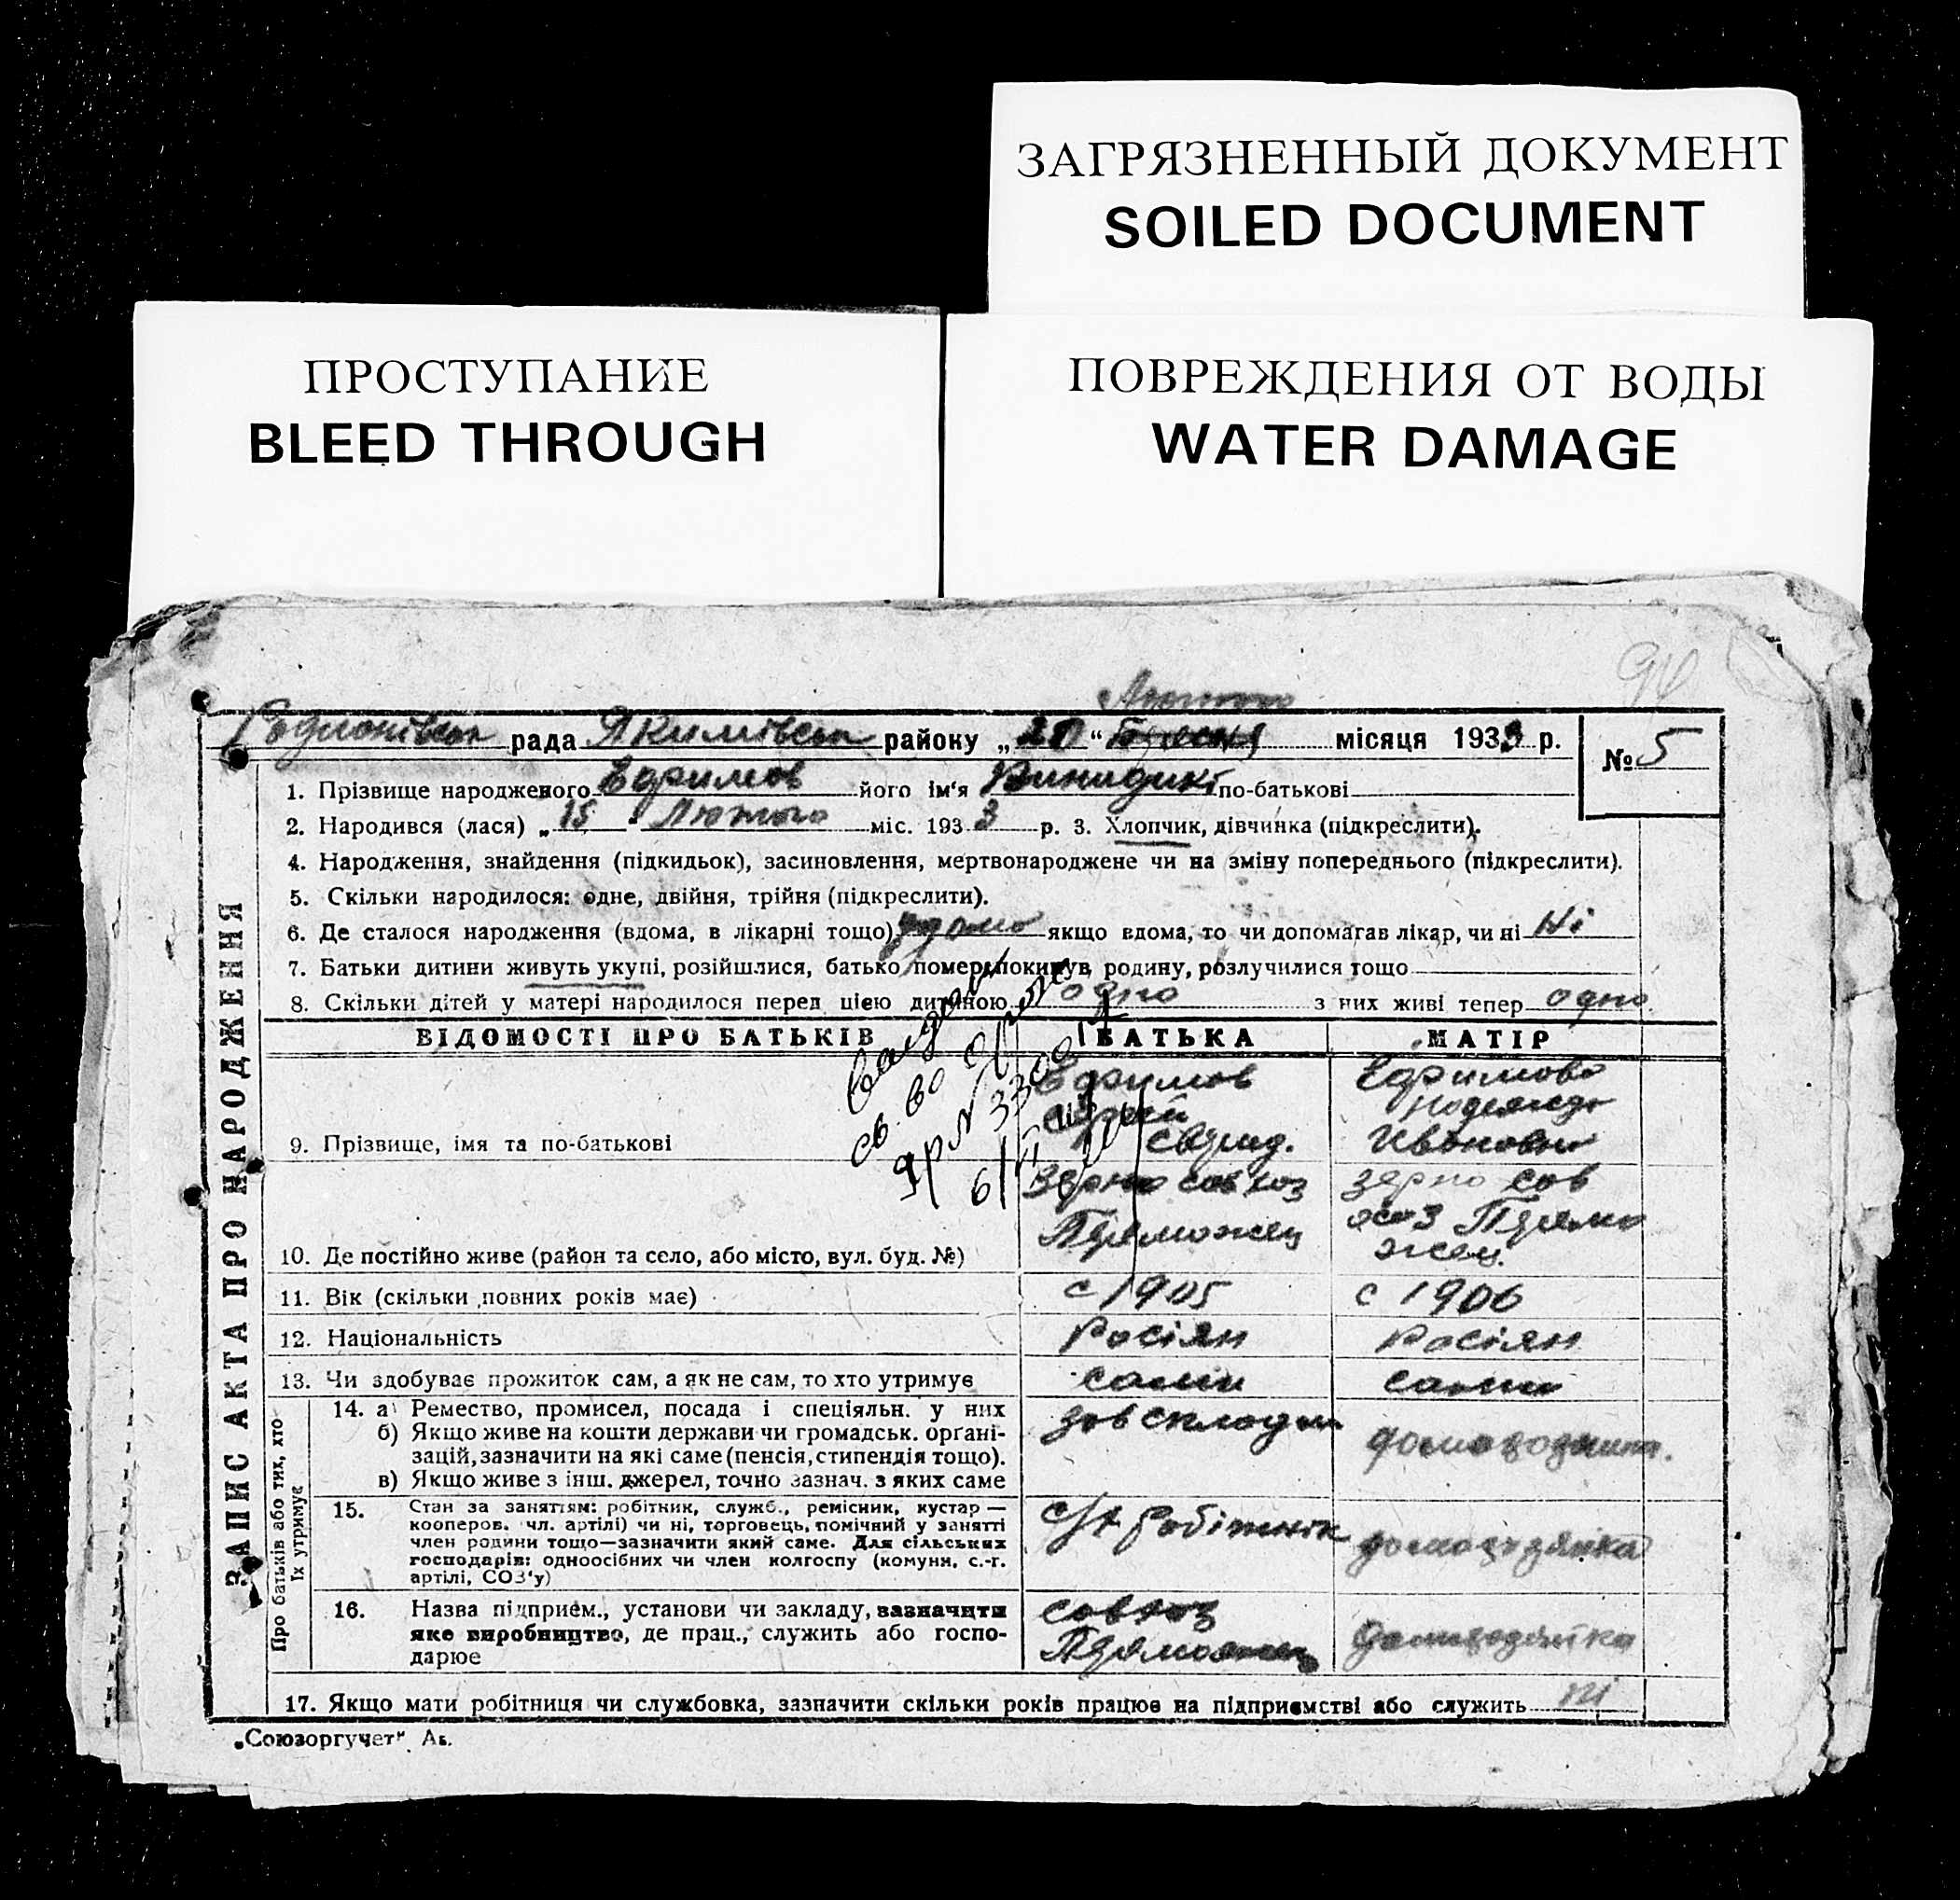 ЗАГРЯЗНЕННЫЙ ДОКУМЕНТ
SOILED DOCUMENT
ПРОСТУПАНИЕ
BLEED THROUGH
ПОВРЕЖДЕНИЯ ОТ ВОДЫ
WATER DAMAGE
Лютого
рада Якимівськ району „20“ місяця 1933 р. № 5
1. Прізвище народженого Ефримов його ім'я Винидикт по-батькові
2. Народився (лася) „15 Лютого міс. 1933 р. 3. Хлопчик, дівчинка (підкреслити).
4. Народження, знайдення (підкидьок), засиновлення, мертвонароджене чи на зміну попереднього (підкреслити).
5. Скільки народилося: одне, двійня, трійня (підкреслити).
6. Де сталося народження (вдома, в лікарні тощо) удома якщо вдома, то чи допомагав лікар, чи ні Ні
7. Батьки дитини живуть укупі, розійшлися, батько помер, покинув родину, розлучилися тощо
8. Скільки дітей у матері народилося перед цією дитиною одно з них живі тепер одно
ВІДОМОСТІ ПРО БАТЬКІВ БАТЬКА МАТІР
9. Прізвище, імя та по-батькові
Ефримов
Ефримова
Надежда
Ивановна
10. Де постійно живе (район та село, або місто, вул. буд. №)
Зерно совхоз
Переможец
зерно сов
хоз Перемо
жец.
11. Вік (скільки повних років має) с 1905 с 1906
12. Національність Росіян Росіян
13. Чи здобуває прожиток сам, а як не сам, то хто утримує сами сами
14. а) Ремество, промисел, посада і спеціяльн. у них
б) Якщо живе на кошти держави чи громадськ. органі-
зацій, зазначити на які саме (пенсія, стипендія тощо).
в) Якщо живе з інш. джерел, точно зазнач. з яких саме
зав складом
15. Стан за заняттям: робітник, служб., ремісник, кустар —
кооперов. чл. артілі) чи ні, торговець, помічний у занятті
член родини тощо—зазначити який саме. Для сільських
господарів: одноосібних чи член колгоспу (комуни, с.-г.
артілі, СОЗ'у)
с/г робітник домогозяйка
16. Назва підприєм., установи чи закладу, зазначити
яке виробництво, де прац., служить або госпо-
дарює
совхоз
Переможец
домогозяйка
17. Якщо мати робітниця чи службовка, зазначити скільки років працює на підприємстві або служить ні
ЗАПИС АКТА ПРО НАРОДЖЕННЯ
Про батьків або тих, хто
їх утримує
„Союзоргучет“